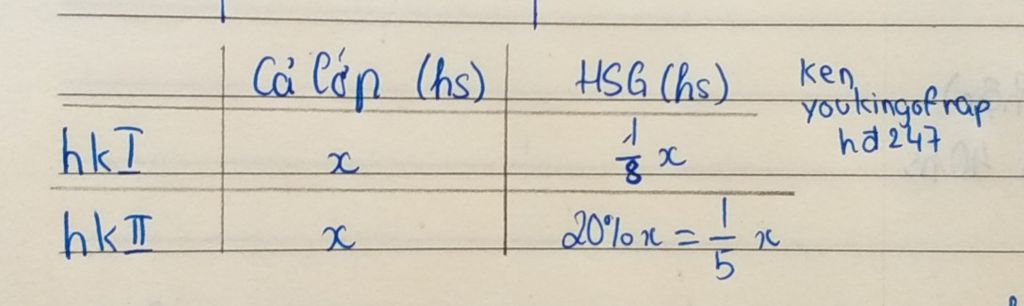 Cả lớp (hs) HSG (hs)
hk I x 1/8 x
hk II x 20% x = 1/5 x
Ken
youkingofrap
hđ247